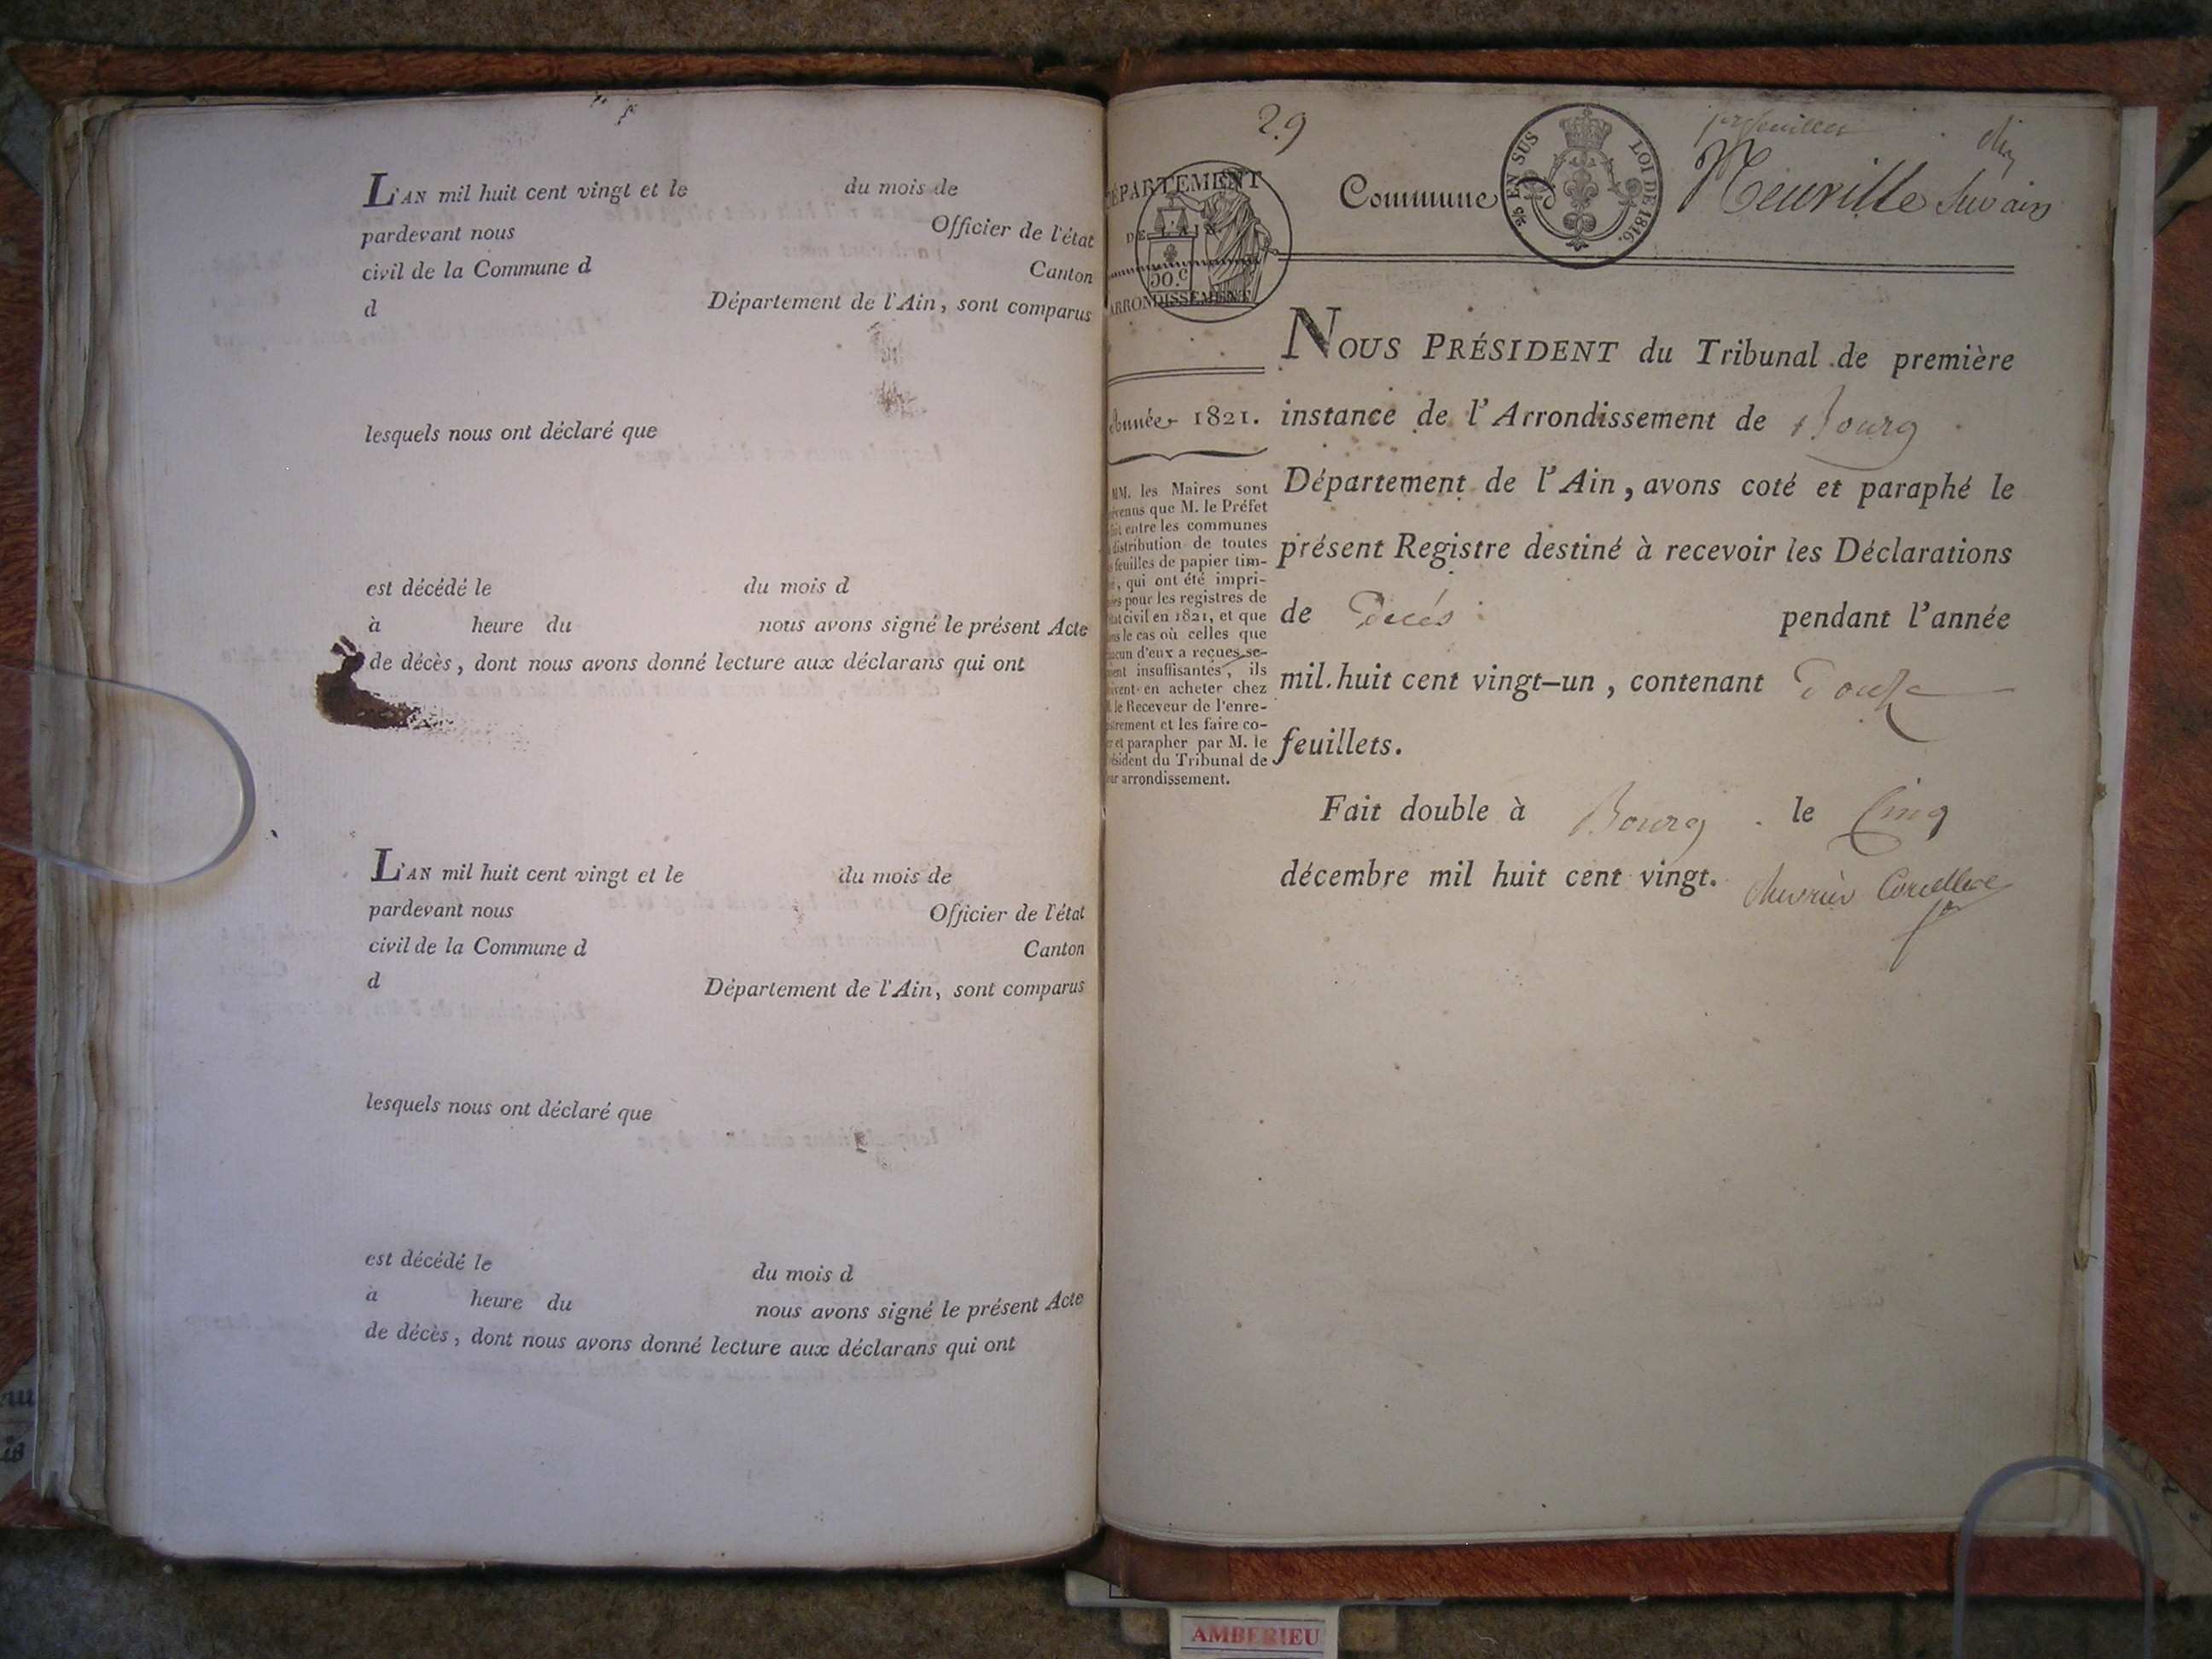 L'AN mil huit cent vingt et le du mois de
pardevant nous Officier de l'état
civil de la Commune d Canton
d Département de l'Ain, sont comparus
lesquels nous ont déclaré que
est décédé le du mois d
à heure du nous avons signé le présent Acte
de décès, dont nous avons donné lecture aux déclarans qui ont
L'AN mil huit cent vingt et le du mois de
pardevant nous Officier de l'état
civil de la Commune d Canton
d Département de l'Ain, sont comparus
lesquels nous ont déclaré que
est décédé le du mois d
à heure du nous avons signé le présent Acte
de décès, dont nous avons donné lecture aux déclarans qui ont
29
DÉPARTEMENT
DE L'AIN
50.C
ARRONDISSEMENT
Année 1821.
MM. les Maires sont
prévenus que M. le Préfet
fait entre les communes
la distribution de toutes
les feuilles de papier tim-
bré, qui ont été impri-
mées pour les registres de
l'état civil en 1821, et que
dans le cas où celles que
chacun d'eux a reçues se-
roient insuffisantes, ils
doivent en acheter chez
M. le Receveur de l'enre-
gistrement et les faire co-
ter et parapher par M. le
Président du Tribunal de
leur arrondissement.
1er feuillet
Commune de Neuville sur ain
EN SUS LOI DE 1816.
NOUS PRÉSIDENT du Tribunal de première
instance de l'Arrondissement de Bourg
Département de l'Ain, avons coté et paraphé le
présent Registre destiné à recevoir les Déclarations
de Décés pendant l'année
mil huit cent vingt-un, contenant Douze
feuillets.
Fait double à Bourg le Cinq
décembre mil huit cent vingt.
Chevrier Corcelles
AMBERIEU